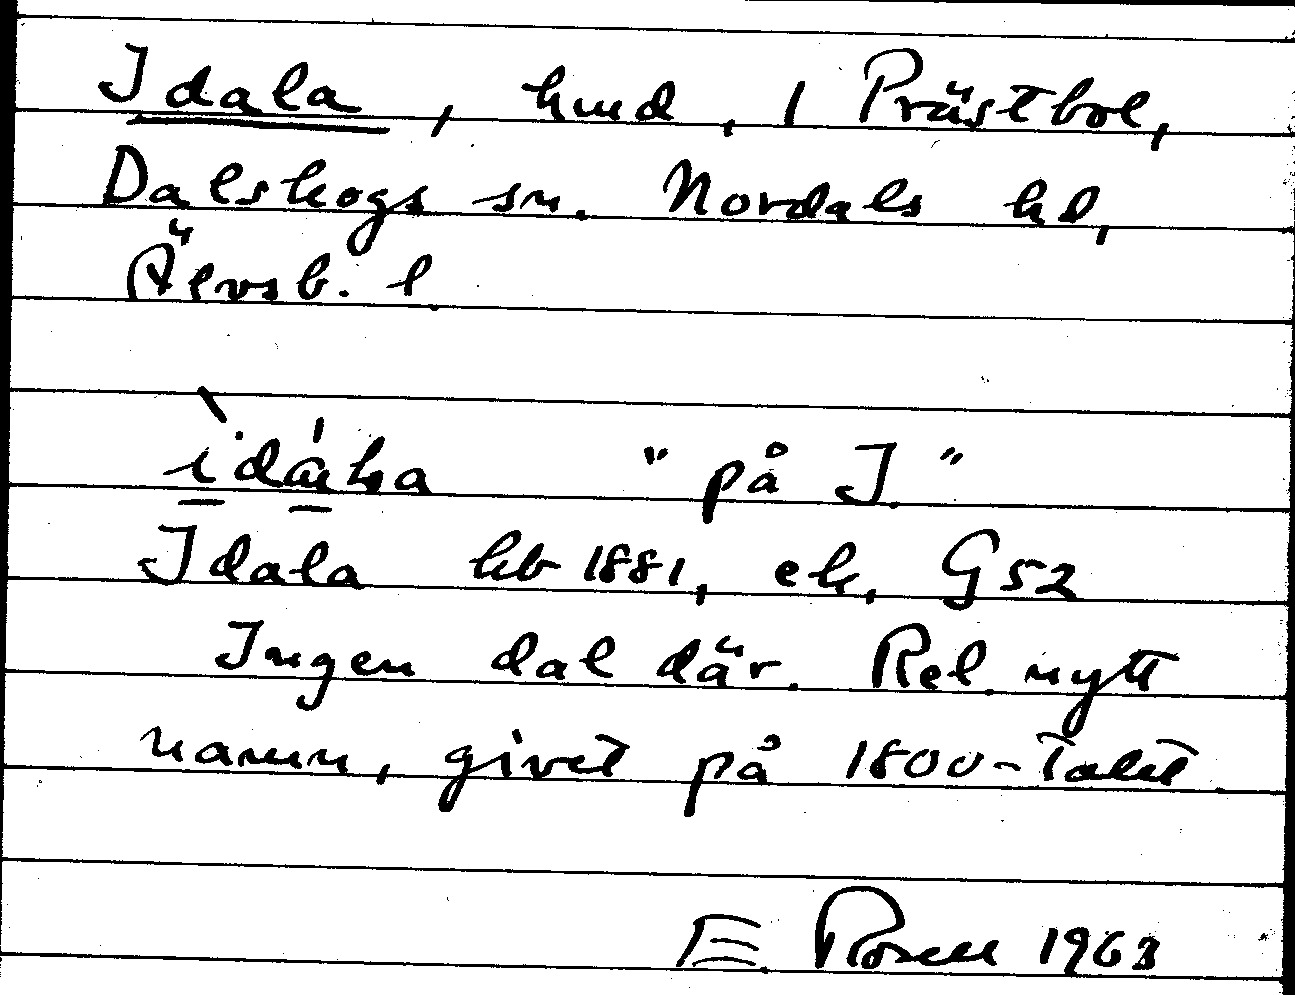 Idala, hmd, 1 Prästbol,
Dalskogs sn. Nordals hd,
Älvsb. l.
"på I."
Idala hb 1881, ek, G52
Ingen dal där. Rel. nytt
namn, givet på 1800-talet.
E. Rosell 1963